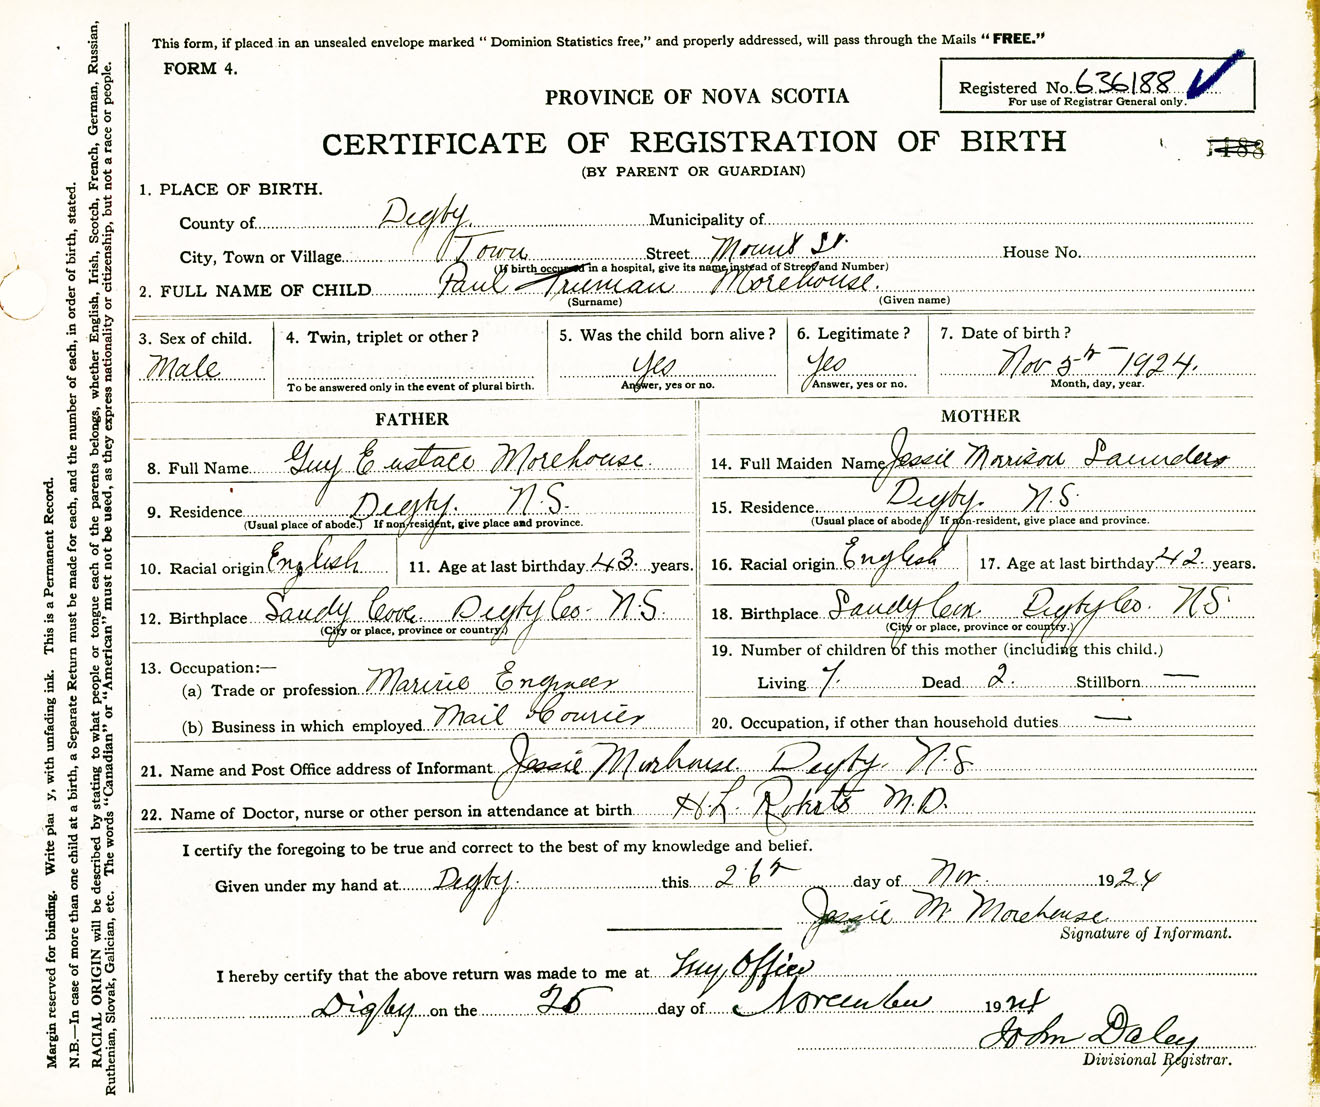 This form, if placed in an unsealed envelope marked " Dominion Statistics free," and properly addressed, will pass through the Mails " FREE."
FORM 4.
Registered No. 636188
For use of Registrar General only.
PROVINCE OF NOVA SCOTIA
CERTIFICATE OF REGISTRATION OF BIRTH
(BY PARENT OR GUARDIAN)
1. PLACE OF BIRTH.
County of Digby Municipality of
City, Town or Village Town Street Mount St. House No.
(If birth occurred in a hospital, give its name instead of Street and Number)
2. FULL NAME OF CHILD Paul Truman Morehouse.
(Surname) (Given name)
3. Sex of child. 4. Twin, triplet or other ? 5. Was the child born alive ? 6. Legitimate ? 7. Date of birth ?
Male Yes Yes Nov 5th 1924.
To be answered only in the event of plural birth. Answer, yes or no. Answer, yes or no. Month, day, year.
FATHER MOTHER
8. Full Name Guy Eustace Morehouse. 14. Full Maiden Name Jessie Morrison Saunders
9. Residence Digby. N.S. 15. Residence Digby. N.S.
(Usual place of abode.) If non-resident, give place and province. (Usual place of abode) If non-resident, give place and province.
10. Racial origin English 11. Age at last birthday 43. years. 16. Racial origin English 17. Age at last birthday 42. years.
12. Birthplace Sandy Cove. Digby Co. N.S. 18. Birthplace Sandy Cove. Digby Co. N.S.
(City or place, province or country.) (City or place, province or country.)
13. Occupation:— 19. Number of children of this mother (including this child.)
(a) Trade or profession Marine Engineer Living 7. Dead 2. Stillborn —
(b) Business in which employed Mail Courier 20. Occupation, if other than household duties —
21. Name and Post Office address of Informant Jessie Morehouse. Digby. N.S
22. Name of Doctor, nurse or other person in attendance at birth H.L. Roberts M.D.
I certify the foregoing to be true and correct to the best of my knowledge and belief.
Given under my hand at Digby. this 26th day of Nov. 1924
Jessie M. Morehouse
Signature of Informant.
I hereby certify that the above return was made to me at my Office
Digby on the day of November 1924
John Daley
Divisional Registrar.
Margin reserved for binding. Write y, with unfading ink. This is a Permanent Record.
N.B.—In case of more than one child at a birth, a Separate Return must be made for each, and the number of each, in order of birth, stated.
RACIAL ORIGIN will be described by stating to what people or tongue each of the parents belongs, whether English, Irish, Scotch, French, German, Russian,
Ruthenian, Slovak, Galician, etc. The words "Canadian" or "American" must not be used, as they express nationality or citizenship, but not a race or people.